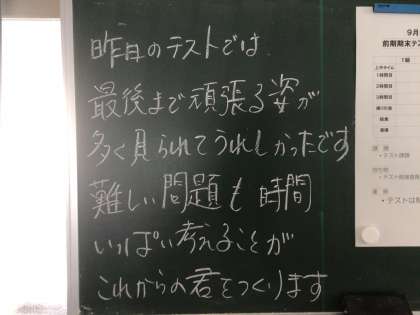 昨日のテストでは
最後まで頑張る姿が
多く見られてうれしかったです
難しい問題も時間
いっぱい考えることが
これからの君をつくります
9月
前期期末テ
1組
1時間目
2時間目
3時間目
給食
・テスト課題
・テスト
・テストは